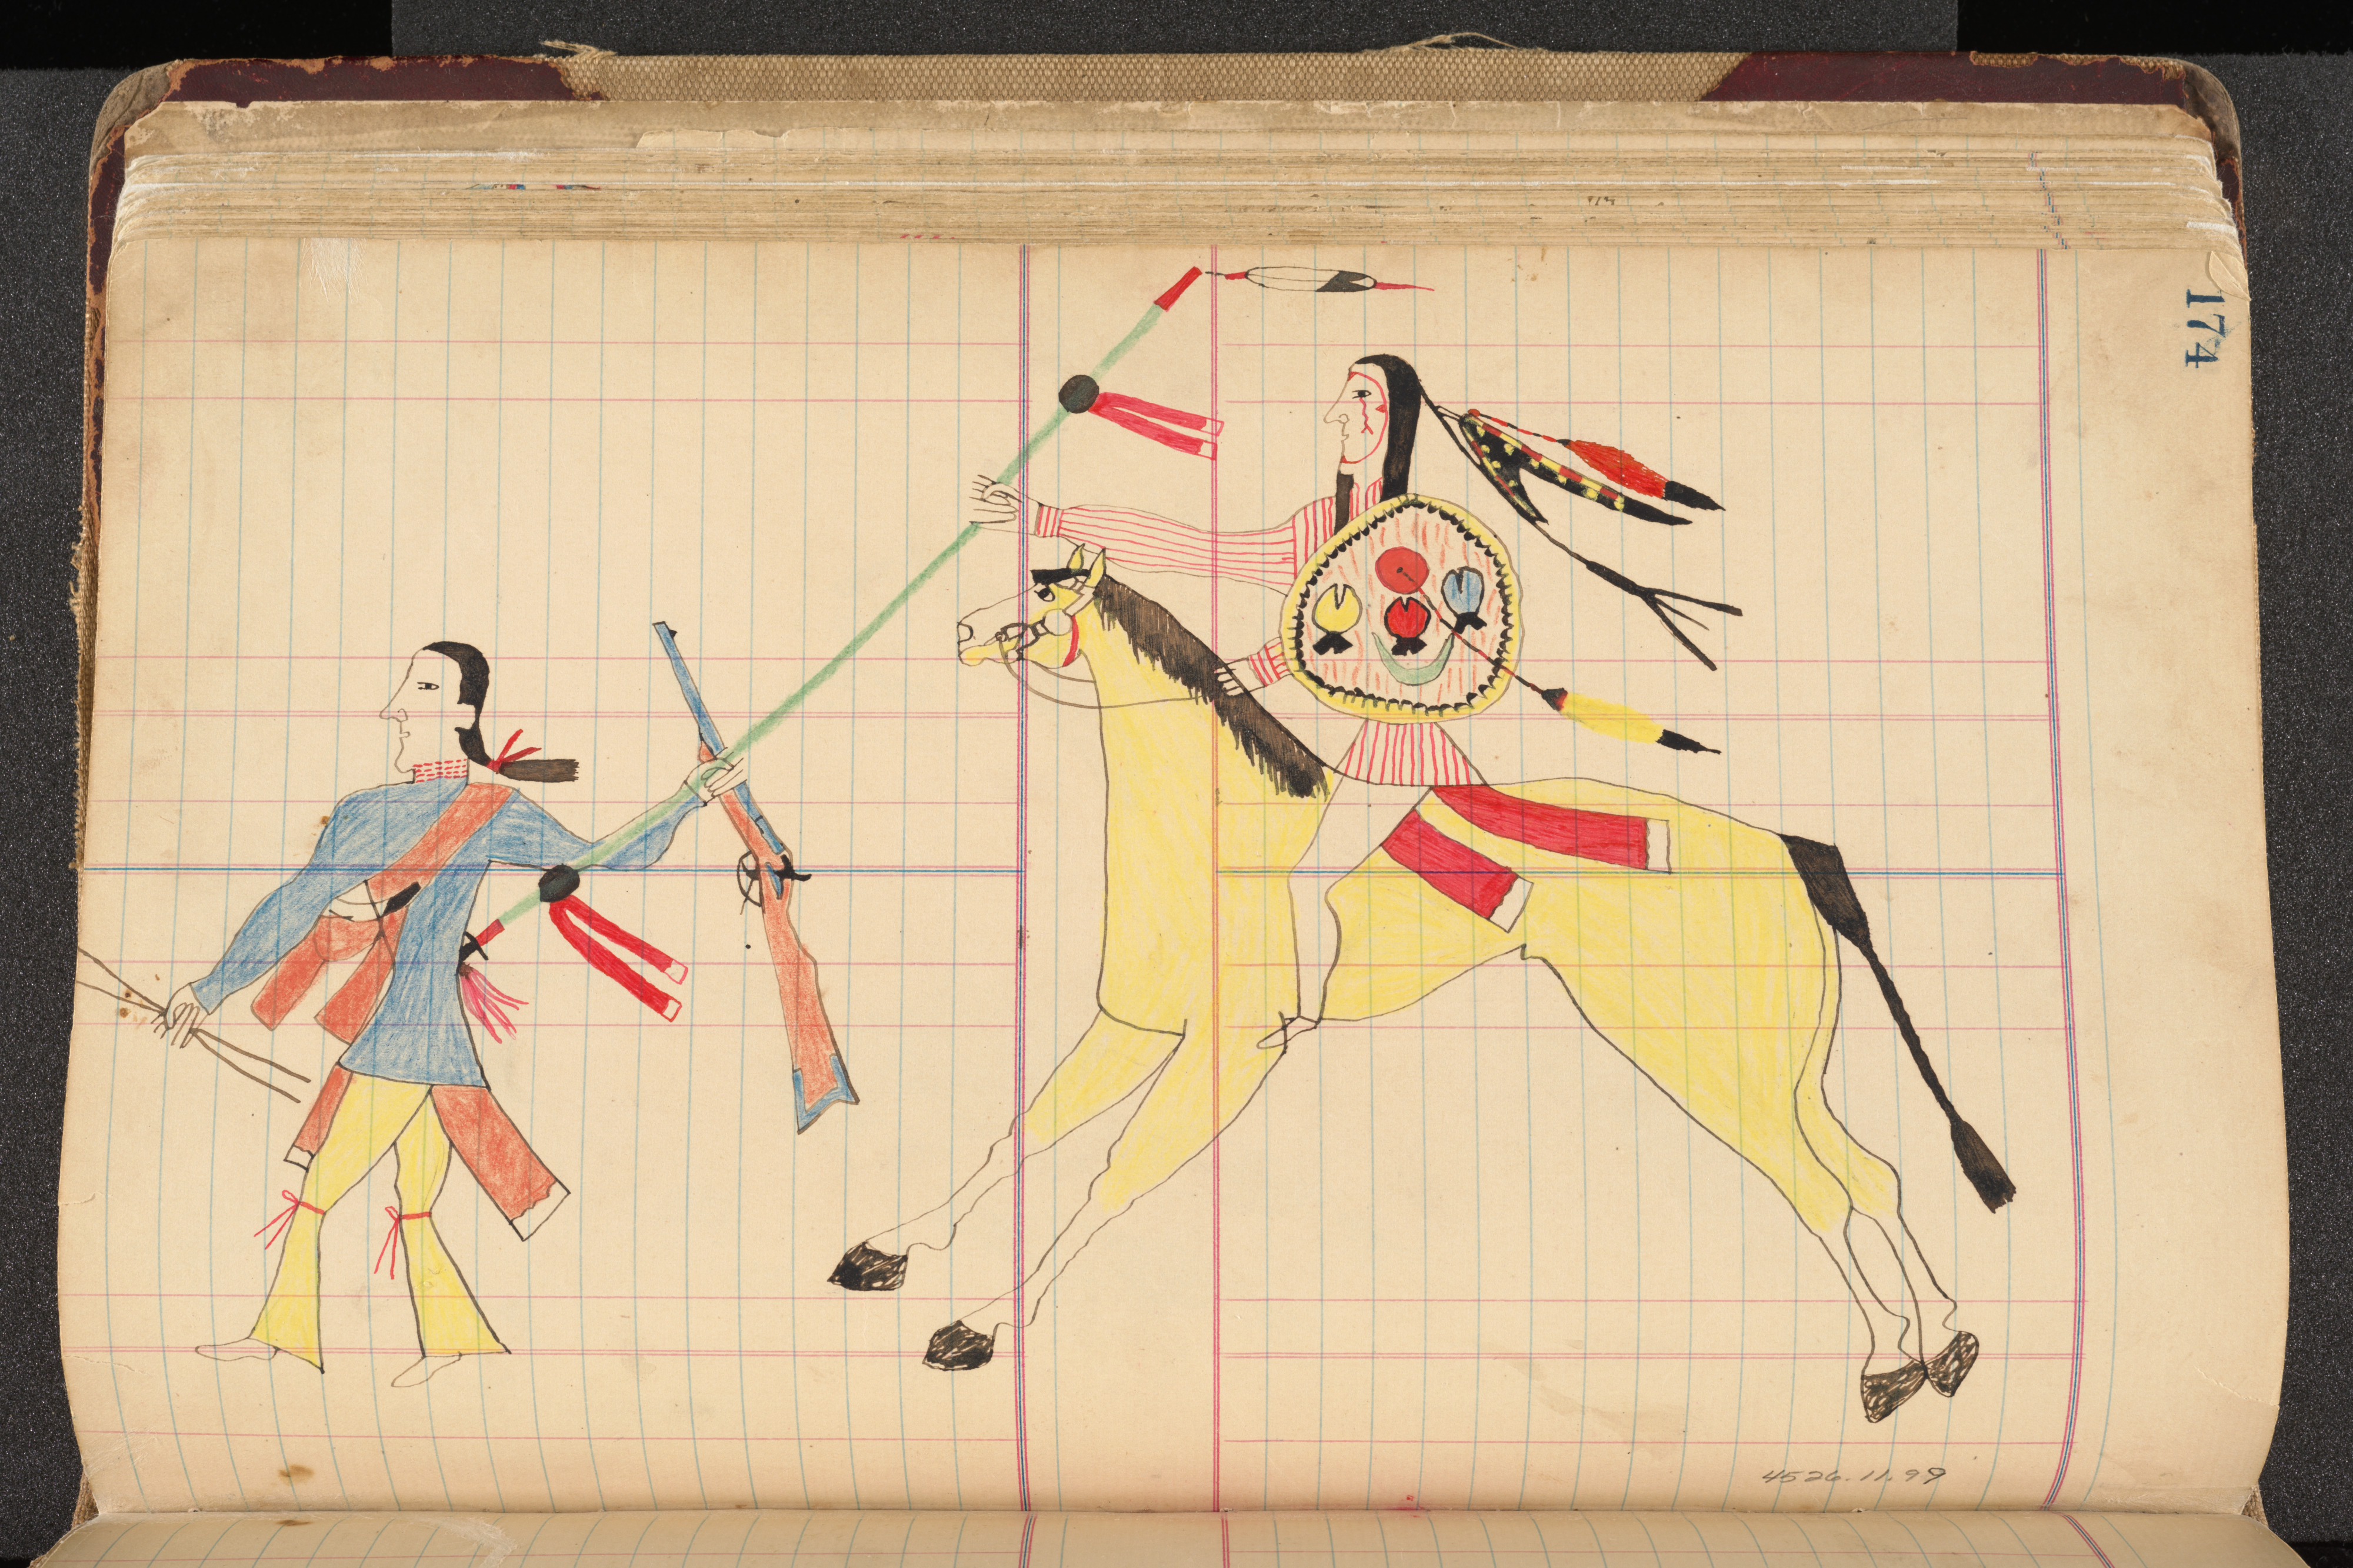 174
4526.11.99